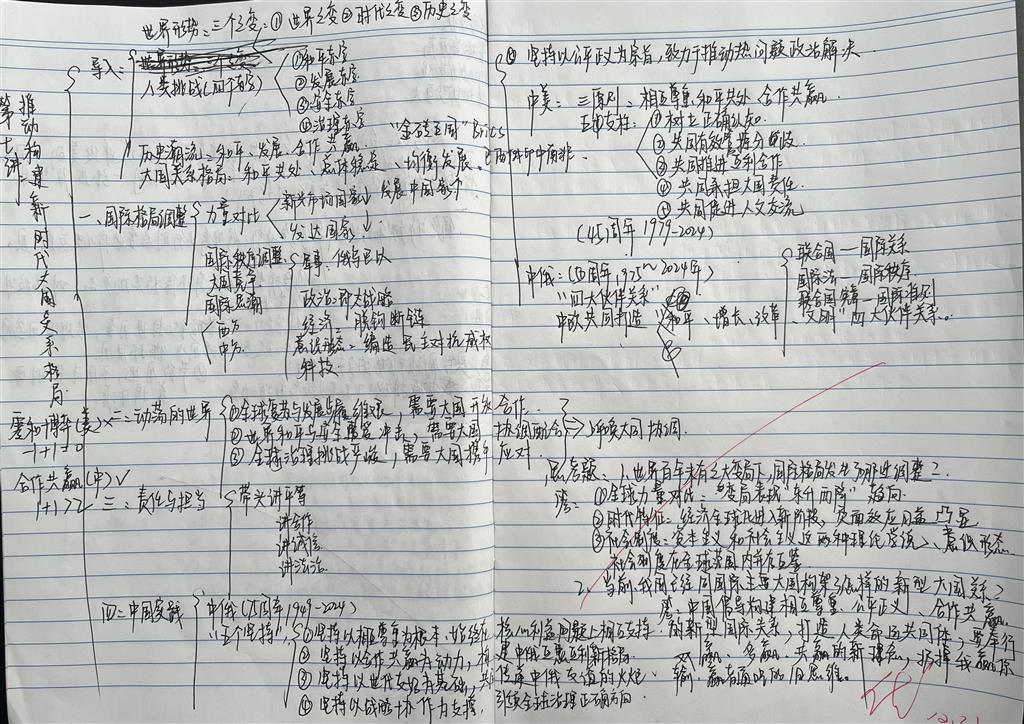 世界形势:三个之变:①世界之变②时代之变③历史之变
第七讲:推动构建新时代大国关系格局
导入:
人类挑战(四个赤字)
①和平赤字
②发展赤字
③安全赤字
④治理赤字
历史潮流:和平、发展、合作、共赢
大国关系格局:和平共处、总体稳定、均衡发展。
"金砖五国" Brics
巴西俄印中南非
一、国际格局调整
力量对比
新兴市场国家、发展中国家↑
发达国家↓
国际秩序调整
大国竞争
国际思潮
西方
中方
军事:俄乌巴以
政治:
经济:脱钩断链
意识形态:编造民主对抗威权
科技:
零和博弈(美)×
-1+1=0
合作共赢(中)✓
1+1>2
二、动荡的世界
①全球复苏与发展步履维艰,需要大国开放合作.
②世界和平与安全重要冲击,需要大国协调配合
③全球治理挑战严峻,需要大国携手应对.
呼唤大国协调.
三、责任与担当
带头讲平等
讲合作
讲诚信
讲法治.
四、中国实践
中俄(75周年1949-2024)
"五个坚持"
①坚持以相互尊重为根本,始终在核心利益问题上相互支持.
②坚持以合作共赢为动力,构建中俄互惠互利新格局.
③坚持以世代友好为基础,共传中俄友谊的火炬.
④坚持以战略协作为支撑,引领全球治理正确方向
⑤坚持以公平正义为宗旨,致力于推动热点问题政治解决.
中美:三原则:相互尊重、和平共处、合作共赢.
五种支柱:①树立正确认知.
②共同有效管控分歧.
③共同推进互利合作
④共同承担大国责任.
⑤共同促进人文交流
(45周年 1979-2024)
中欧:(50周年 1975~2024年)
"四大伙伴关系"
中欧共同打造"和平、增长、改革、文明"四大伙伴关系。
联合国—国际关系
国际法—国际秩序.
联合国宪章—国际准则
思考题:1、世界百年未有之大变局下,国际格局发生了哪些调整?
答:①全球力量对比:变局表现"东升西降"趋向.
②时代特征:经济全球化进入新阶段,负面效应日益凸显
③社会制度:资本主义和社会主义这两种理论学说、意识形态、
社会制度在全球范围内并存互鉴
2、当前,我国已经同国际主要大国构架了怎样的新型大国关系?
答:中国倡导构建相互尊重、公平正义、合作共赢
的新型国际关系,打造人类命运共同体,要奉行
双赢、多赢、共赢的新理念,扔掉我赢你
输、赢者通吃的旧思维。
12.21